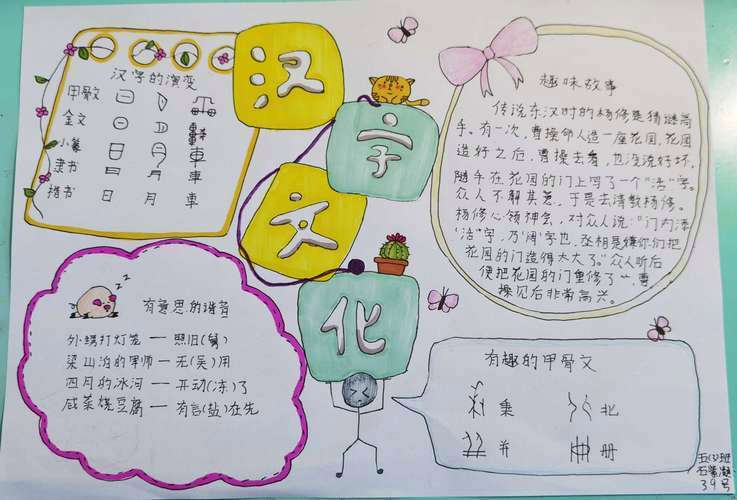 汉字文化
汉字的演变
甲骨文
金文
小篆 車
隶书 日 月 車
楷书 日 月 車
趣味故事
传说东汉时的杨修是猜谜高
手。有一次,曹操命人造一座花园,花园
造好之后,曹操去看,也没说好坏,
随手在花园的门上写了一个“活”字。
众人不解其意,于是去请教杨修。
杨修心领神会,对众人说:“门内添
‘活’字,乃‘阔’字也,丞相是嫌你们把
花园的门造得太大了。”众人听后
便把花园的门重修了,曹
操见后非常高兴。
zz
有意思的谐音
外甥打灯笼 — 照旧(舅)
梁山泊的军师 — 无(吴)用
四月的冰河 — 开动(冻)了
咸菜烧豆腐 — 有言(盐)在先
有趣的甲骨文
乘 北
并 册
班
39号